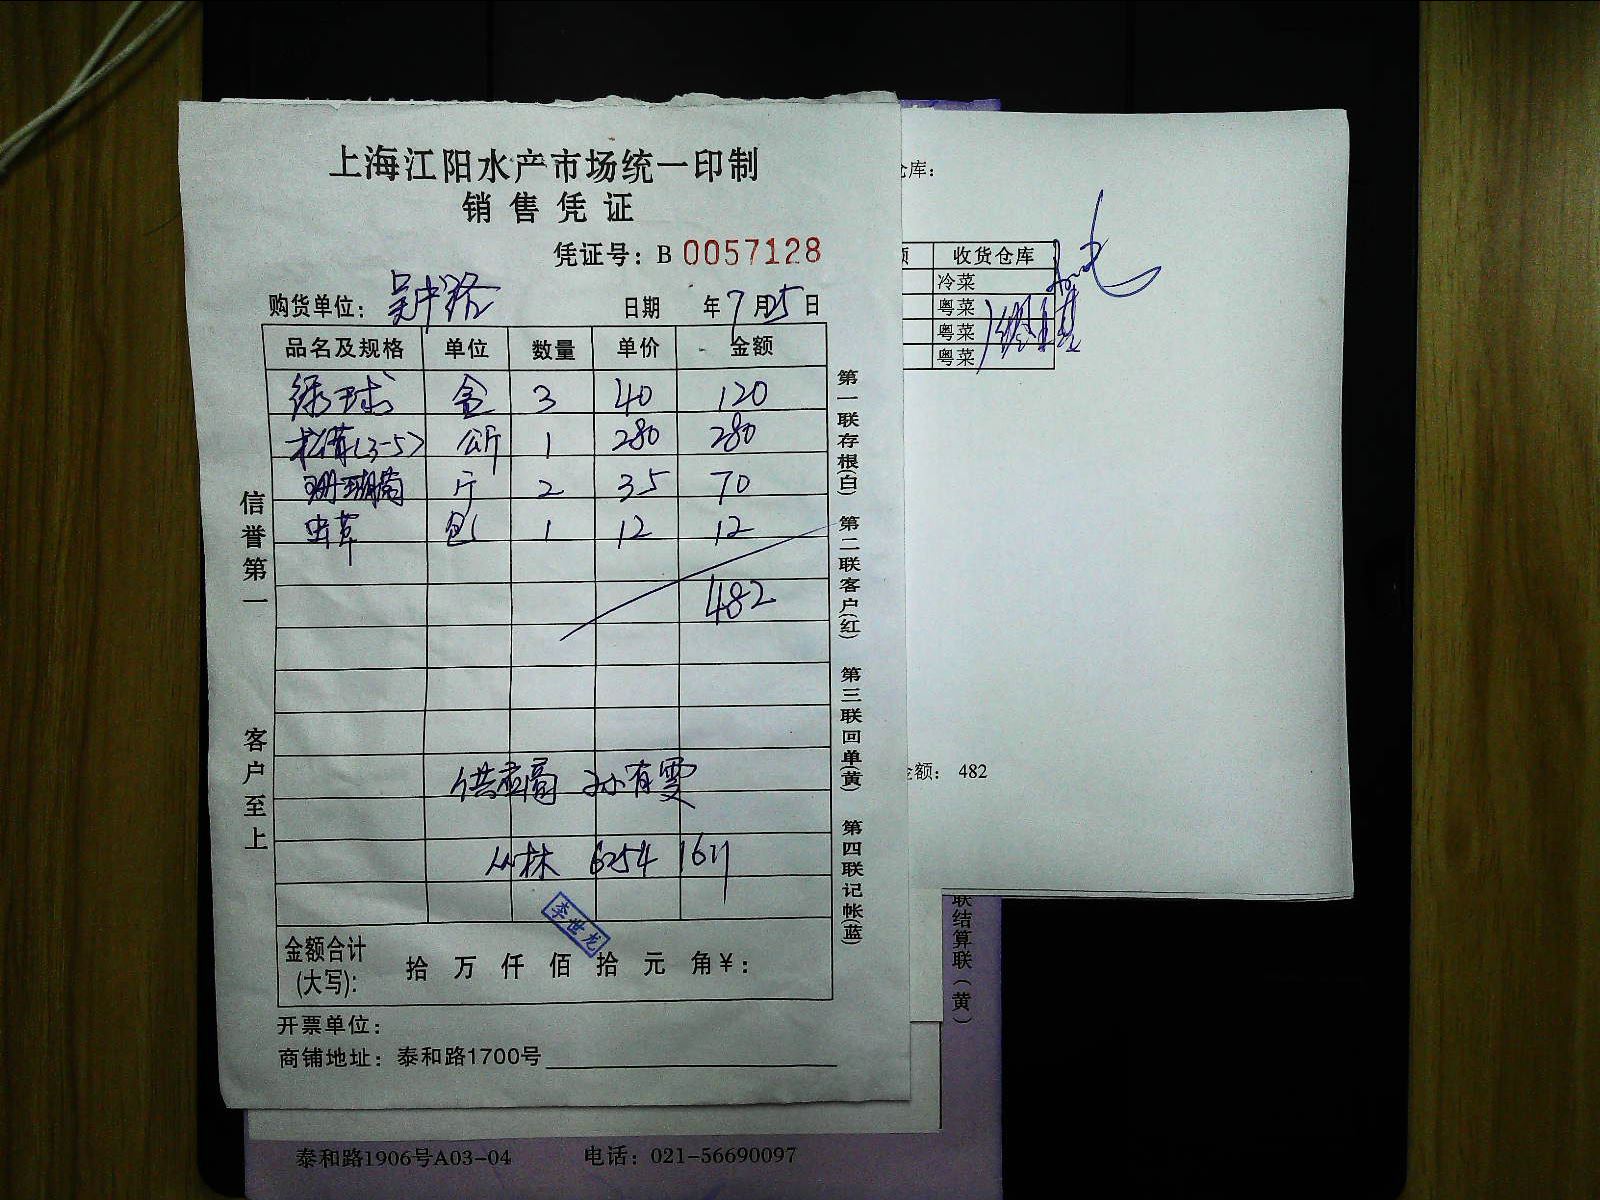 上海江阳水产市场统一印制
销售凭证
凭证号：B 0057128
购货单位：吴中路 日期 年7月25日
品名及规格 单位 数量 单价 金额
绿球 盒 3 40 120
松茸(3-5) 公斤 1 280 280
珊瑚菌 斤 2 35 70
虫草 包 1 12 12
482
供应商 孙有雯
丛林 6254 1611
李世龙
金额合计
(大写)：
拾 万 仟 佰 拾 元 角 ¥：
开票单位：
商铺地址：泰和路1700号
信誉第一
客户至上
第一联存根(白) 第二联客户(红) 第三联回单(黄) 第四联记帐(蓝)
仓库：
额 收货仓库
冷菜
粤菜
粤菜
粤菜
金额： 482
联结算联（黄）
泰和路1906号A03-04 电话：021-56690097